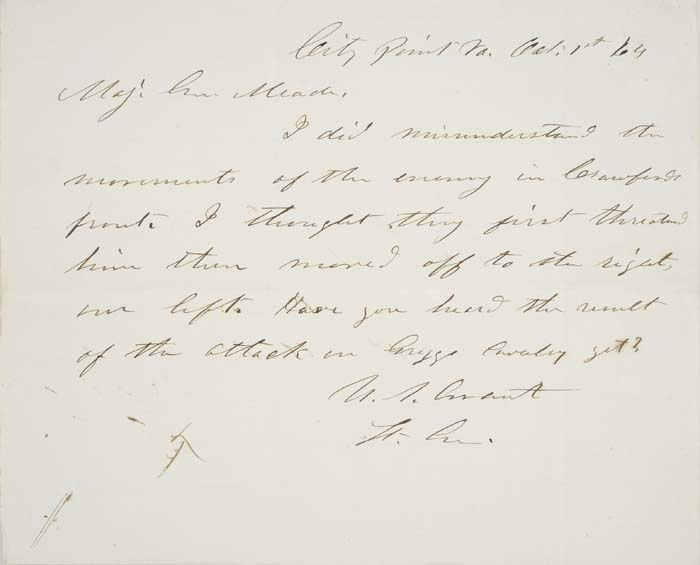 City Point Va. Oct. 1st 64
Maj. Gen. Meade,
I did misunderstand the
movements of the enemy in Crawfords
front. I thought they first threatened
him then moved off to the right,
our left. Have you heard the result
of the attack on Greggs Cavalry yet?
U. S. Grant
Lt. Gen.